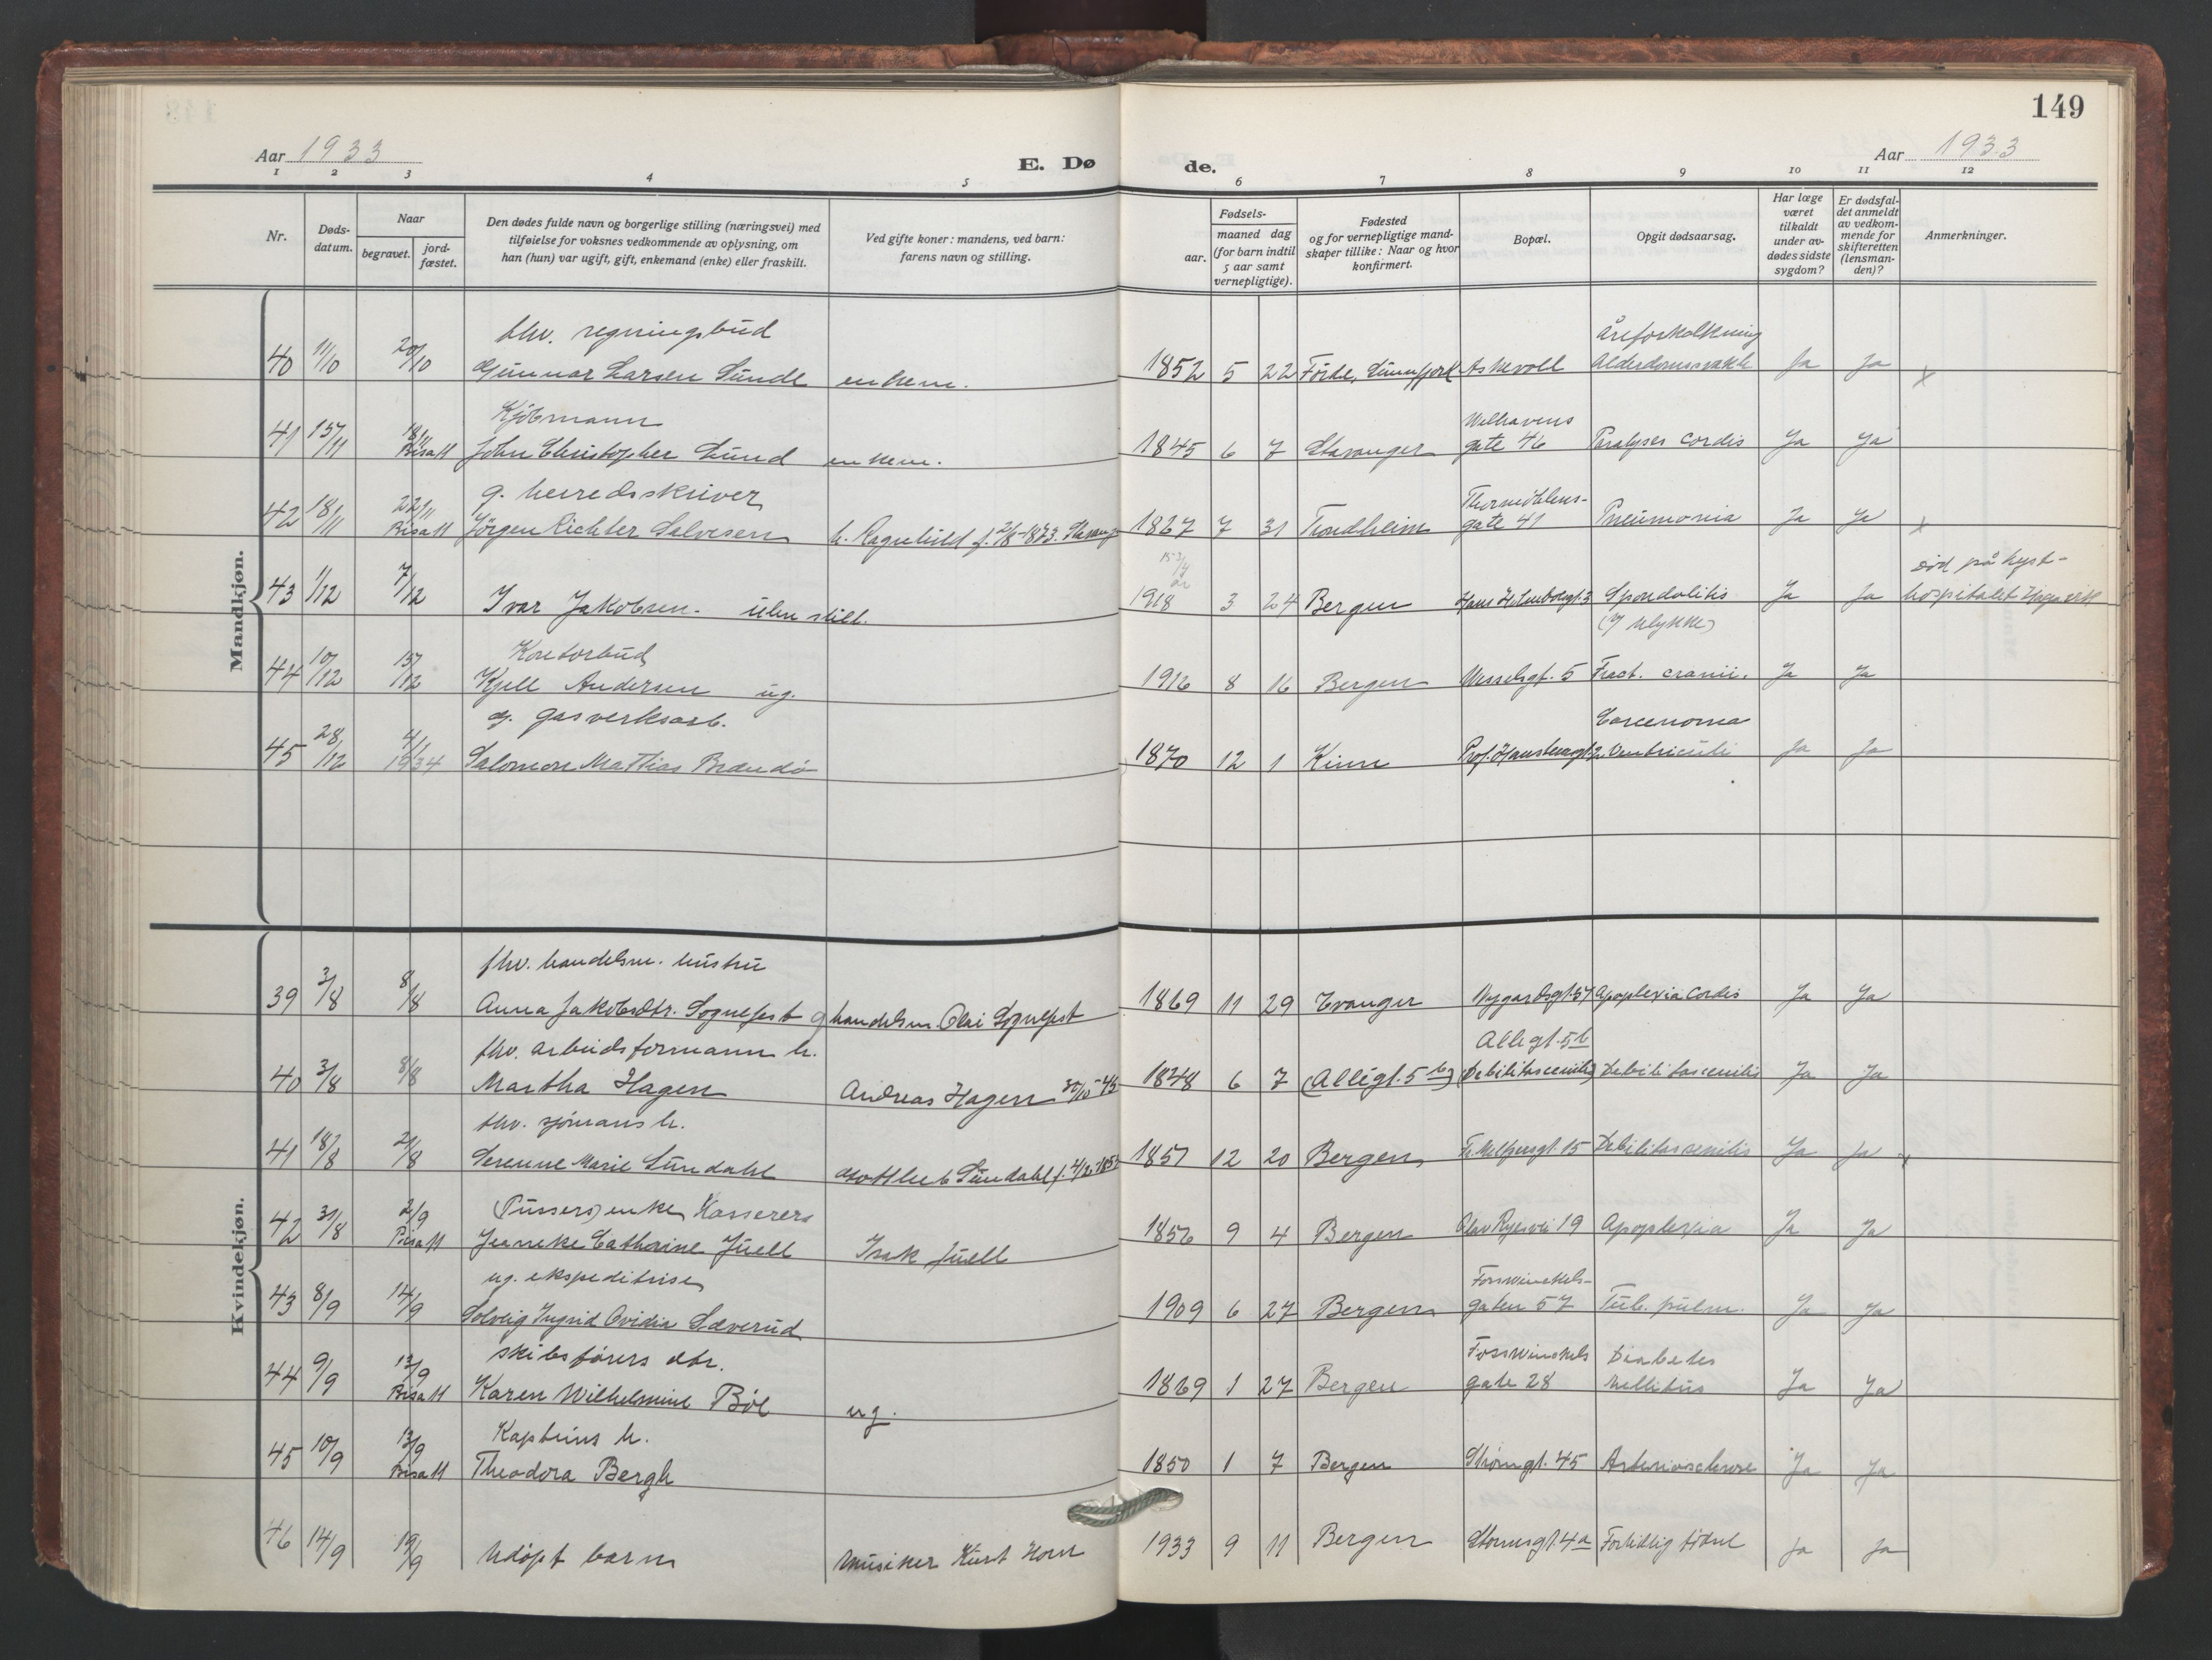 149
Aar 1933
E. Døde.
Aar 1933
1 2 3 4 5 6 7 8 9 10 11 12
Nr.
Døds-datum.
Naar
begravet.
jord-fæstet.
Den dødes fulde navn og borgerlige stilling (næringsvei) med
tilføielse for voksnes vedkommende av oplysning, om
han (hun) var ugift, gift, enkemand (enke) eller fraskilt.
Ved gifte koner: mandens, ved barn:
farens navn og stilling.
Fødsels-
aar.
maaned dag
(for barn indtil
5 aar samt
vernepligtige).
Fødested
og for vernepligtige mand-
skaper tillike: Naar og hvor
konfirmert.
Bopæl.
Opgit dødsaarsag.
Har læge
været
tilkaldt
under av-
dødes sidste
sygdom?
Er dødsfal-
det anmeldt
av vedkom-
mende for
skifteretten
(lensman-
den)?
Anmerkninger.
Mandkjøn.
fhv. regningsbud Åreforkalkning
40 11/10 20/10 Gunnar Larsen Sunde enkem. 1852 5 22 Förde, Sunnfjord Askevoll Alderdomssvakh Ja Ja x
Kjöbmann Welhavens
41 15/11 18/11 Bisatt John Christopher Lund enkem. 1845 6 7 Stavanger gate 46 Paralyses cordis Ja Ja
g. herredsskriver Thormöhlens-
42 18/11 22/11 Bisatt Jörgen Richter Salvesen h. Ragnhild f. 2/8-1873. 1867 7 31 Trondheim gate 41 Pneumonia Ja Ja x
15 3/4 år död på kyst-
43 1/12 7/12 Ivar Jakobsen. uten still. 1918 3 24 Bergen Spondolitis Ja Ja hospitalet
Kontorbud (Ulykke)
44 10/12 15/12 Kjell Andersen ug. 1916 8 16 Bergen Wesselsgt. 5 Fract. cranii. Ja Ja
g. gasverksarb. Carcenoma
45 28/12 4/1 1934 Salomon Mattias Brandö 1870 12 1 Kinn Ventriculi Ja Ja
Kvindekjøn.
fhv. handelsm. hustru
39 3/8 8/8 Anna Jakobsdtr. Sognefest g handelsm. Olai Sognefest 1869 11 29 Evanger Nygardsgt. 57 Apoplexia cordis Ja Ja
fhv. arbeidsformann h. Allegt. 5b
40 3/8 8/8 Martha Hagen Andreas Hagen 1848 6 7 (Allégt. 5 b) (Debilitas cenilis) Debilitas cenilis Ja Ja
fhv. sjömans h.
41 18/8 21/8 Serenne Marie Sundahl Gottlieb Sundahl 1857 12 20 Bergen 15 Debilitas senilis Ja Ja x
(Pussers) enke, Kasserers
42 31/8 2/9 Bisatt Jeaneke Cathrine Juell Isak Juell 1856 9 4 Bergen Olav Ryesvei 19 Apoplexia Ja Ja
ug. ekspeditrise Fosswinckels-
43 8/9 14/9 Solveig Ingrid Ovidia Sæverud 1909 6 27 Bergen gaten 57 Tub. pulm. Ja Ja
skibsförers dtr. Fosswinckels Diabetes
44 9/9 13/9 Bisatt Karen Wilhelmine Böe ug. 1869 1 27 Bergen gate 28 Mellitus Ja Ja
Kapteins h.
45 10/9 13/9 Bisatt Theodora Bergh 1850 1 7 Bergen Strömgt. 45 Arteriosclerose Ja Ja
46 14/9 19/9 Udöpt barn Musiker Kurt Horn 1933 9 11 Bergen 4a Fortidlig födsel Ja Ja